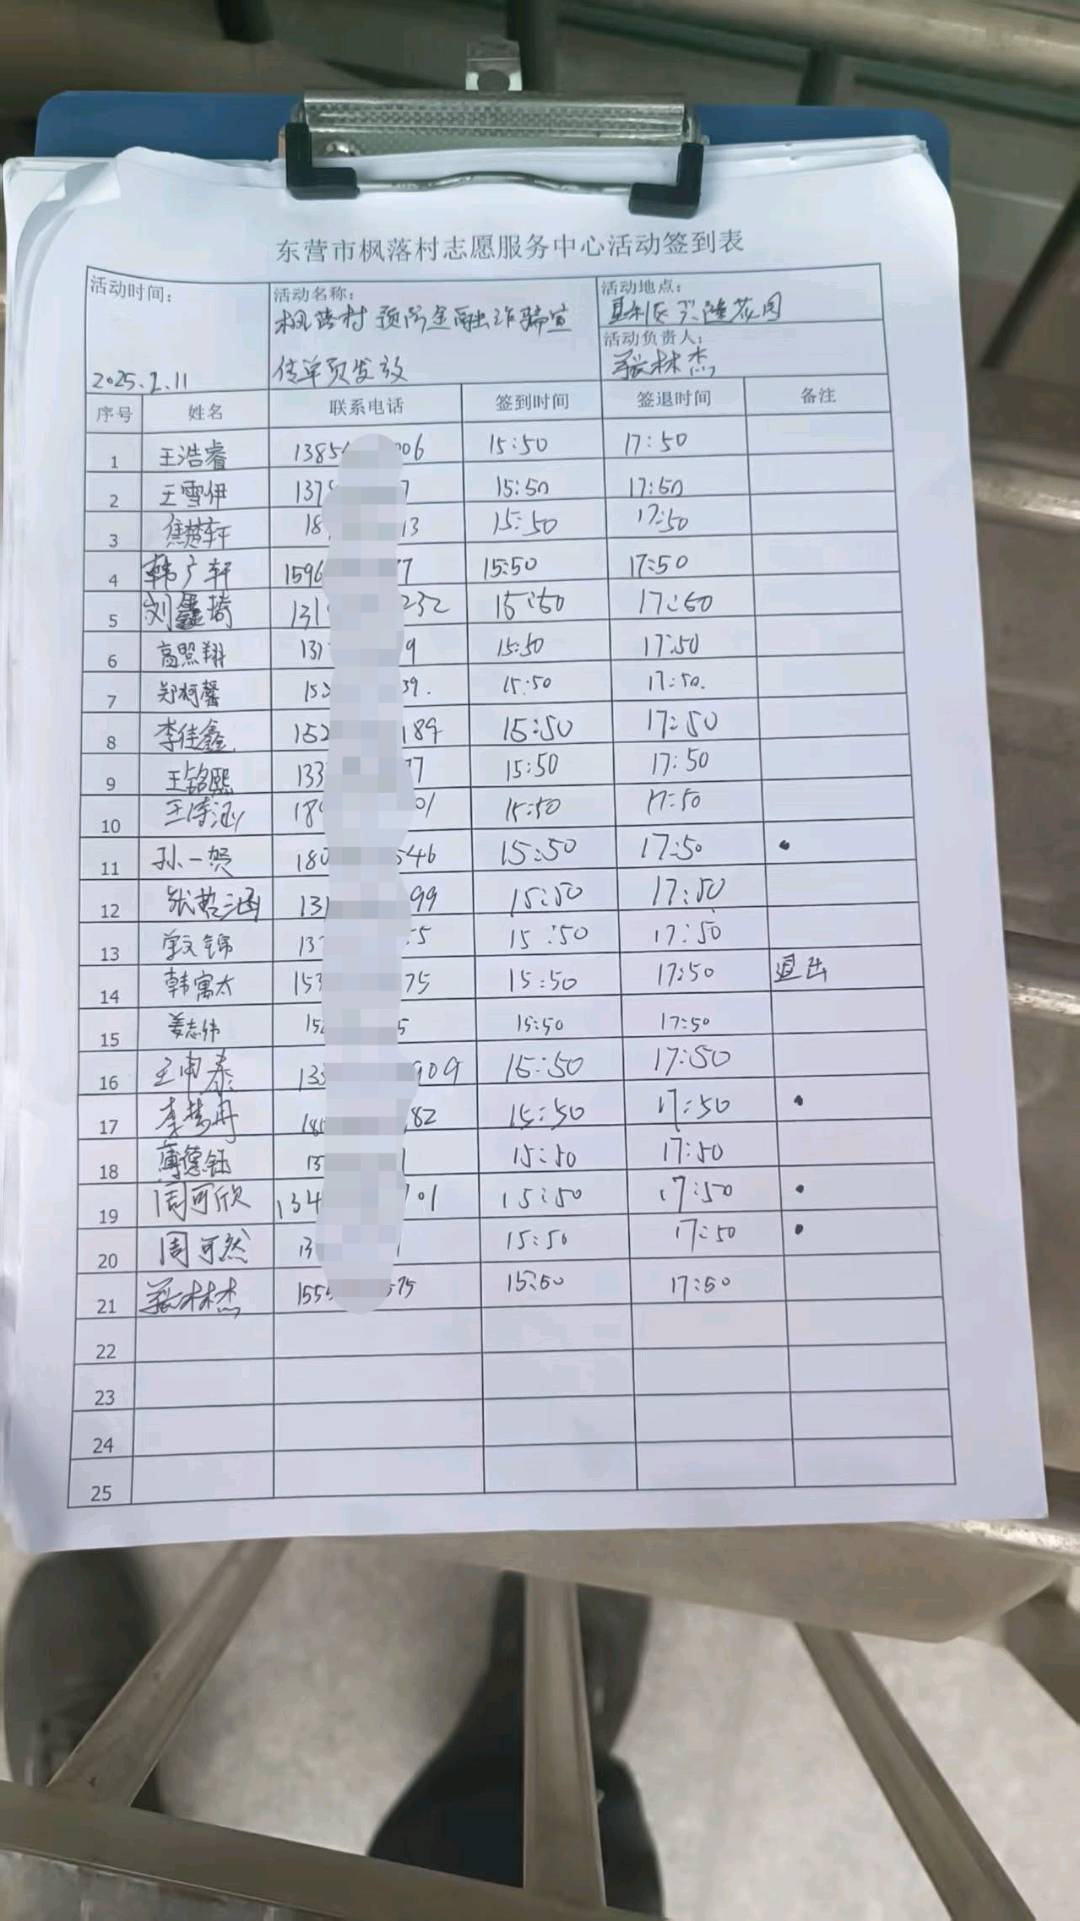 东营市枫落村志愿服务中心活动签到表
活动时间： 2025.2.11
活动名称： 枫落村 预防金融诈骗宣
传单页发放
活动地点：
垦利区兴隆花园
活动负责人：
张林杰
序号 姓名 联系电话 签到时间 签退时间 备注
1 王浩睿 1385 006 15:50 17:50
2 王雪伊 137 7 15:50 17:50
3 焦楚轩 18 13 15:50 17:50
4 韩广轩 1596 77 15:50 17:50
5 刘鑫琦 131 232 15:50 17:50
6 高照翔 137 9 15:50 17:50
7 郑柯馨 152 39. 15:50 17:50.
8 李佳鑫 152 189 15:50 17:50
9 王铭熙 133 77 15:50 17:50
10 王诗涵 18 01 15:50 17:50
11 孙一贺 180 546 15:50 17:50 •
12 张艺涵 131 99 15:50 17:50
13 137 55 15:50 17:50
14 韩寓太 153 75 15:50 17:50 退出
15 姜志伟 152 5 15:50 17:50
16 王申泰 133 909 15:50 17:50
17 李梦冉 18 82 15:50 17:50 •
18 薄德钰 13 1 15:50 17:50
19 周可欣 134 701 15:50 17:50 •
20 周可然 13 1 15:50 17:50 •
21 张林杰 155 575 15:50 17:50
22
23
24
25